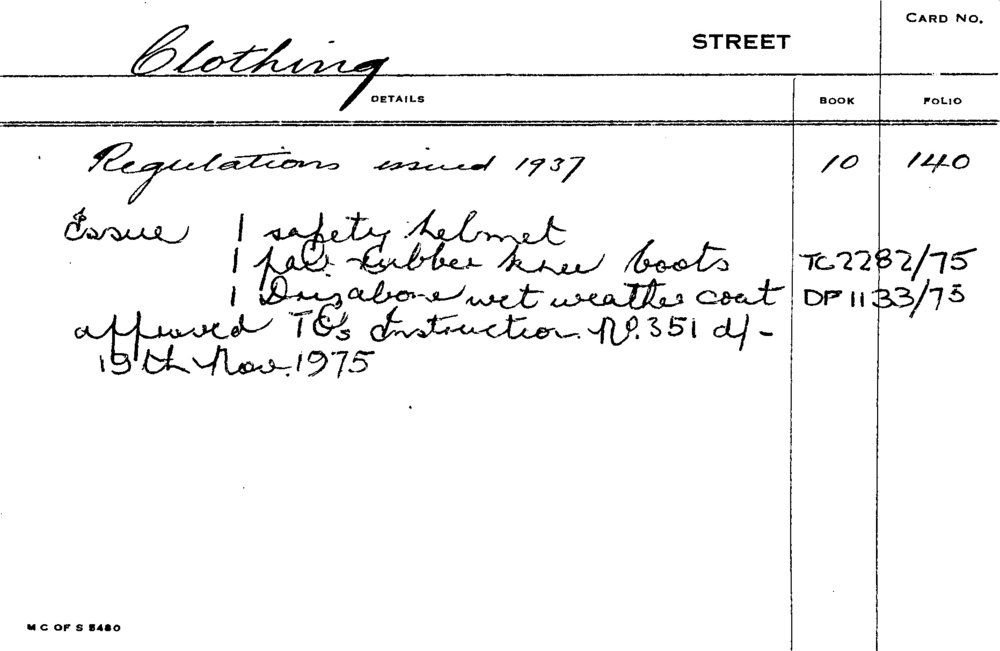 CARD NO.
Clothing STREET
DETAILS BOOK FOLIO
Regulations issued 1937 10 140
Issue 1 safety helmet
1 pair rubber knee boots TC2282/75
1 Drizabone wet weather coat DP1133/75
approved TC's Instruction No. 351 d/-
19th Nov. 1975
M C OF S 5480